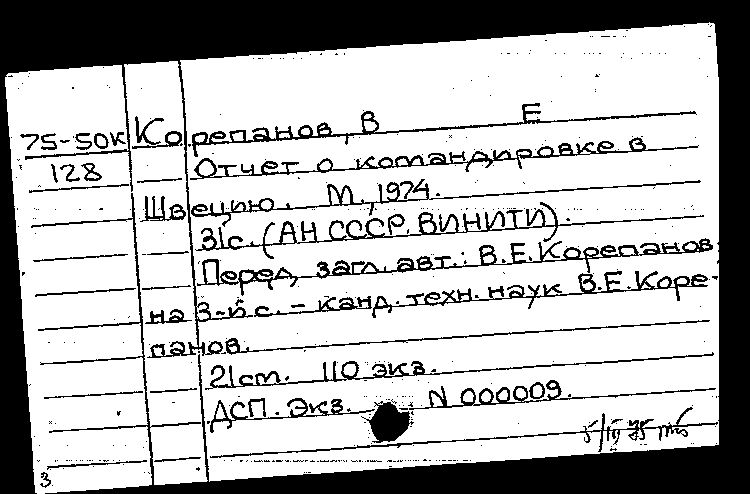 75-50к Корепанов, В Е
128 Отчет о командировке в
Швецию. М., 1974.
31с. (АН СССР. ВИНИТИ).
Перед загл. авт.: В.Е.Корепанов;
на 3-й с. – канд. техн. наук В.Е.Коре-
панов.
21см. 110 экз.
ДСП. Экз. N 000009.
5/III 75
3